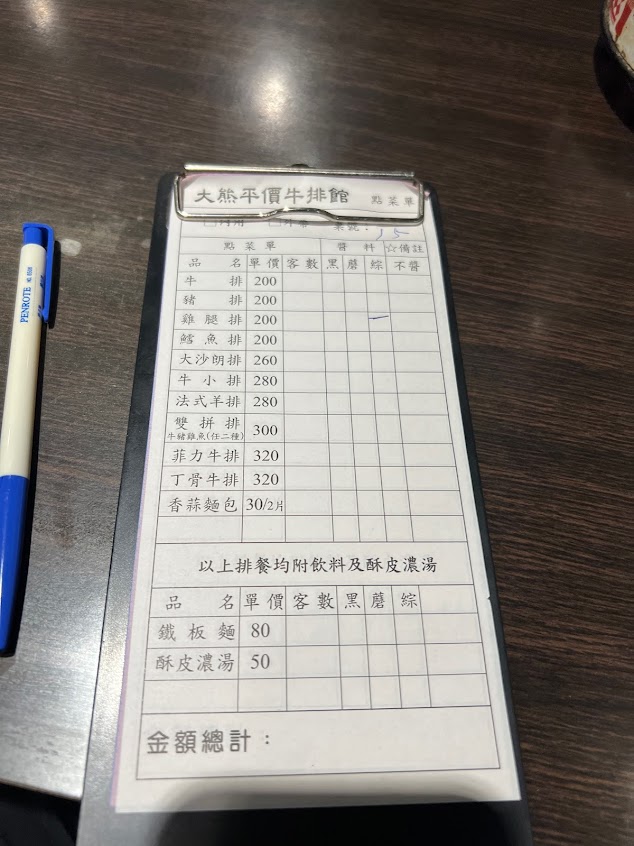 大熊平價牛排館 點菜單
桌號：15
點菜單 醬料 ☆備註
品名 單價 客數 黑 蘑 綜 不醬
牛排 200
豬排 200
雞腿排 200
鱈魚排 200
大沙朗排 260
牛小排 280
法式羊排 280
雙拼排 300
牛豬雞魚(任二種)
菲力牛排 320
丁骨牛排 320
香蒜麵包 30/2片
以上排餐均附飲料及酥皮濃湯
品名 單價 客數 黑 蘑 綜
鐵板麵 80
酥皮濃湯 50
金額總計：
PENROTE